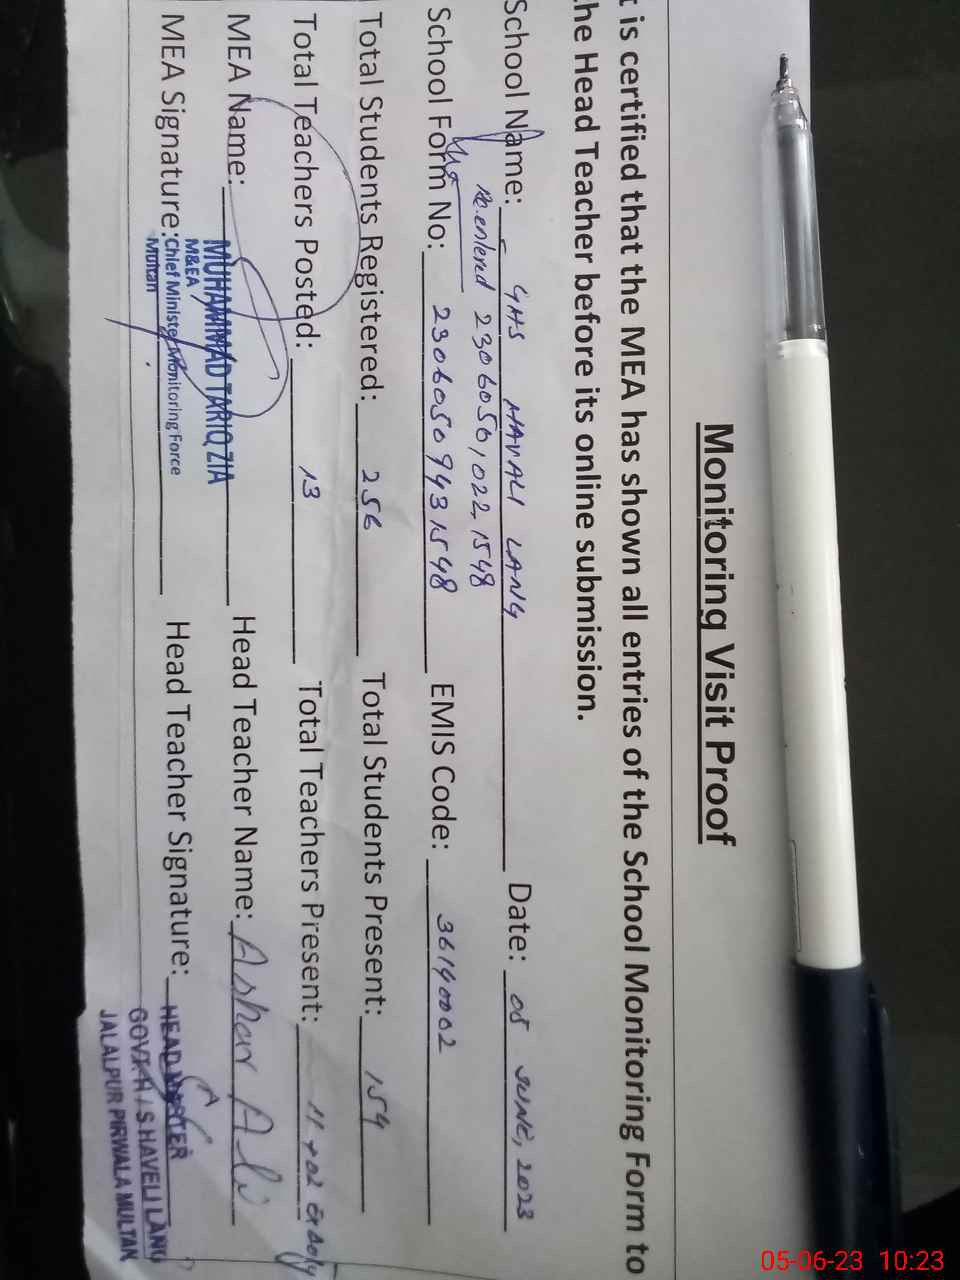 Monitoring Visit Proof
t is certified that the MEA has shown all entries of the School Monitoring Form to
he Head Teacher before its online submission.
School Name: GHS HAVALI LANG Date: 05 JUNE, 2023
Re-entered 2306050,022,1548
School Form No: 23060509431548 EMIS Code: 36140002
Total Students Registered: 256 Total Students Present: 154
Total Teachers Posted: 13 Total Teachers Present: 11 + 02
MEA Name: MUHAMMAD TARIQ ZIA Head Teacher Name: Ashar Ali
M&EA
MEA Signature: Chief Minister Monitoring Force Head Teacher Signature: HEAD MASTER
Multan
GOVT. H / S HAVELI LANG
JALALPUR PIRWALA MULTAN
05-06-23 10:23